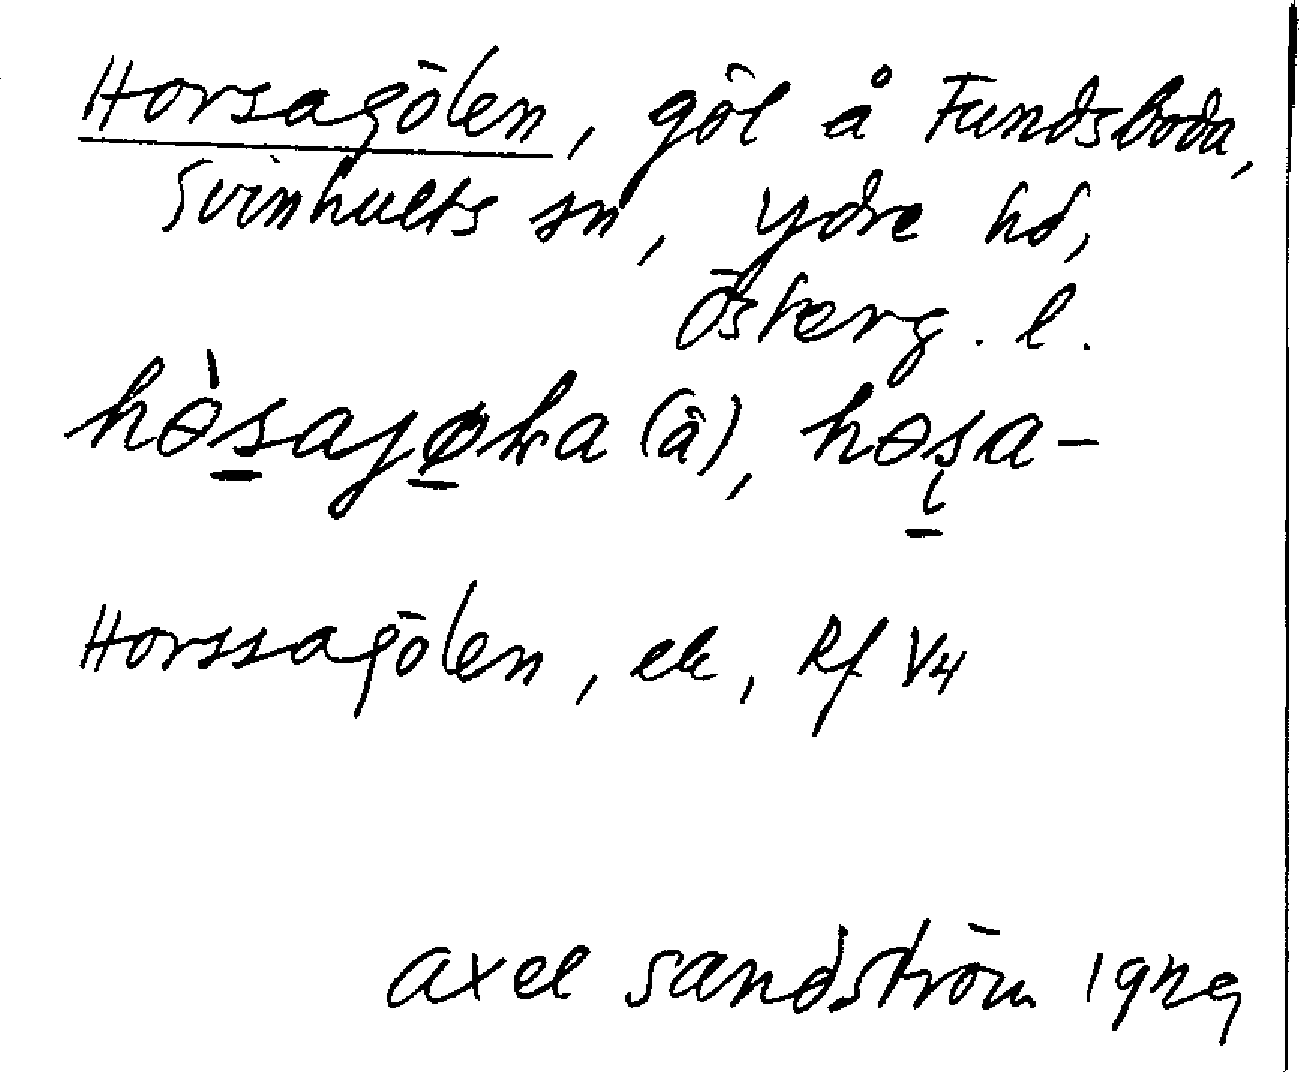 Horsagölen, göl å Fundsboda,
Svinhults sn, Ydre hd,
Österg. l.
hɵ̀sajøka (â), hɵsa-
Horssagölen, ek, Rf V4
Axel Sandström 1929